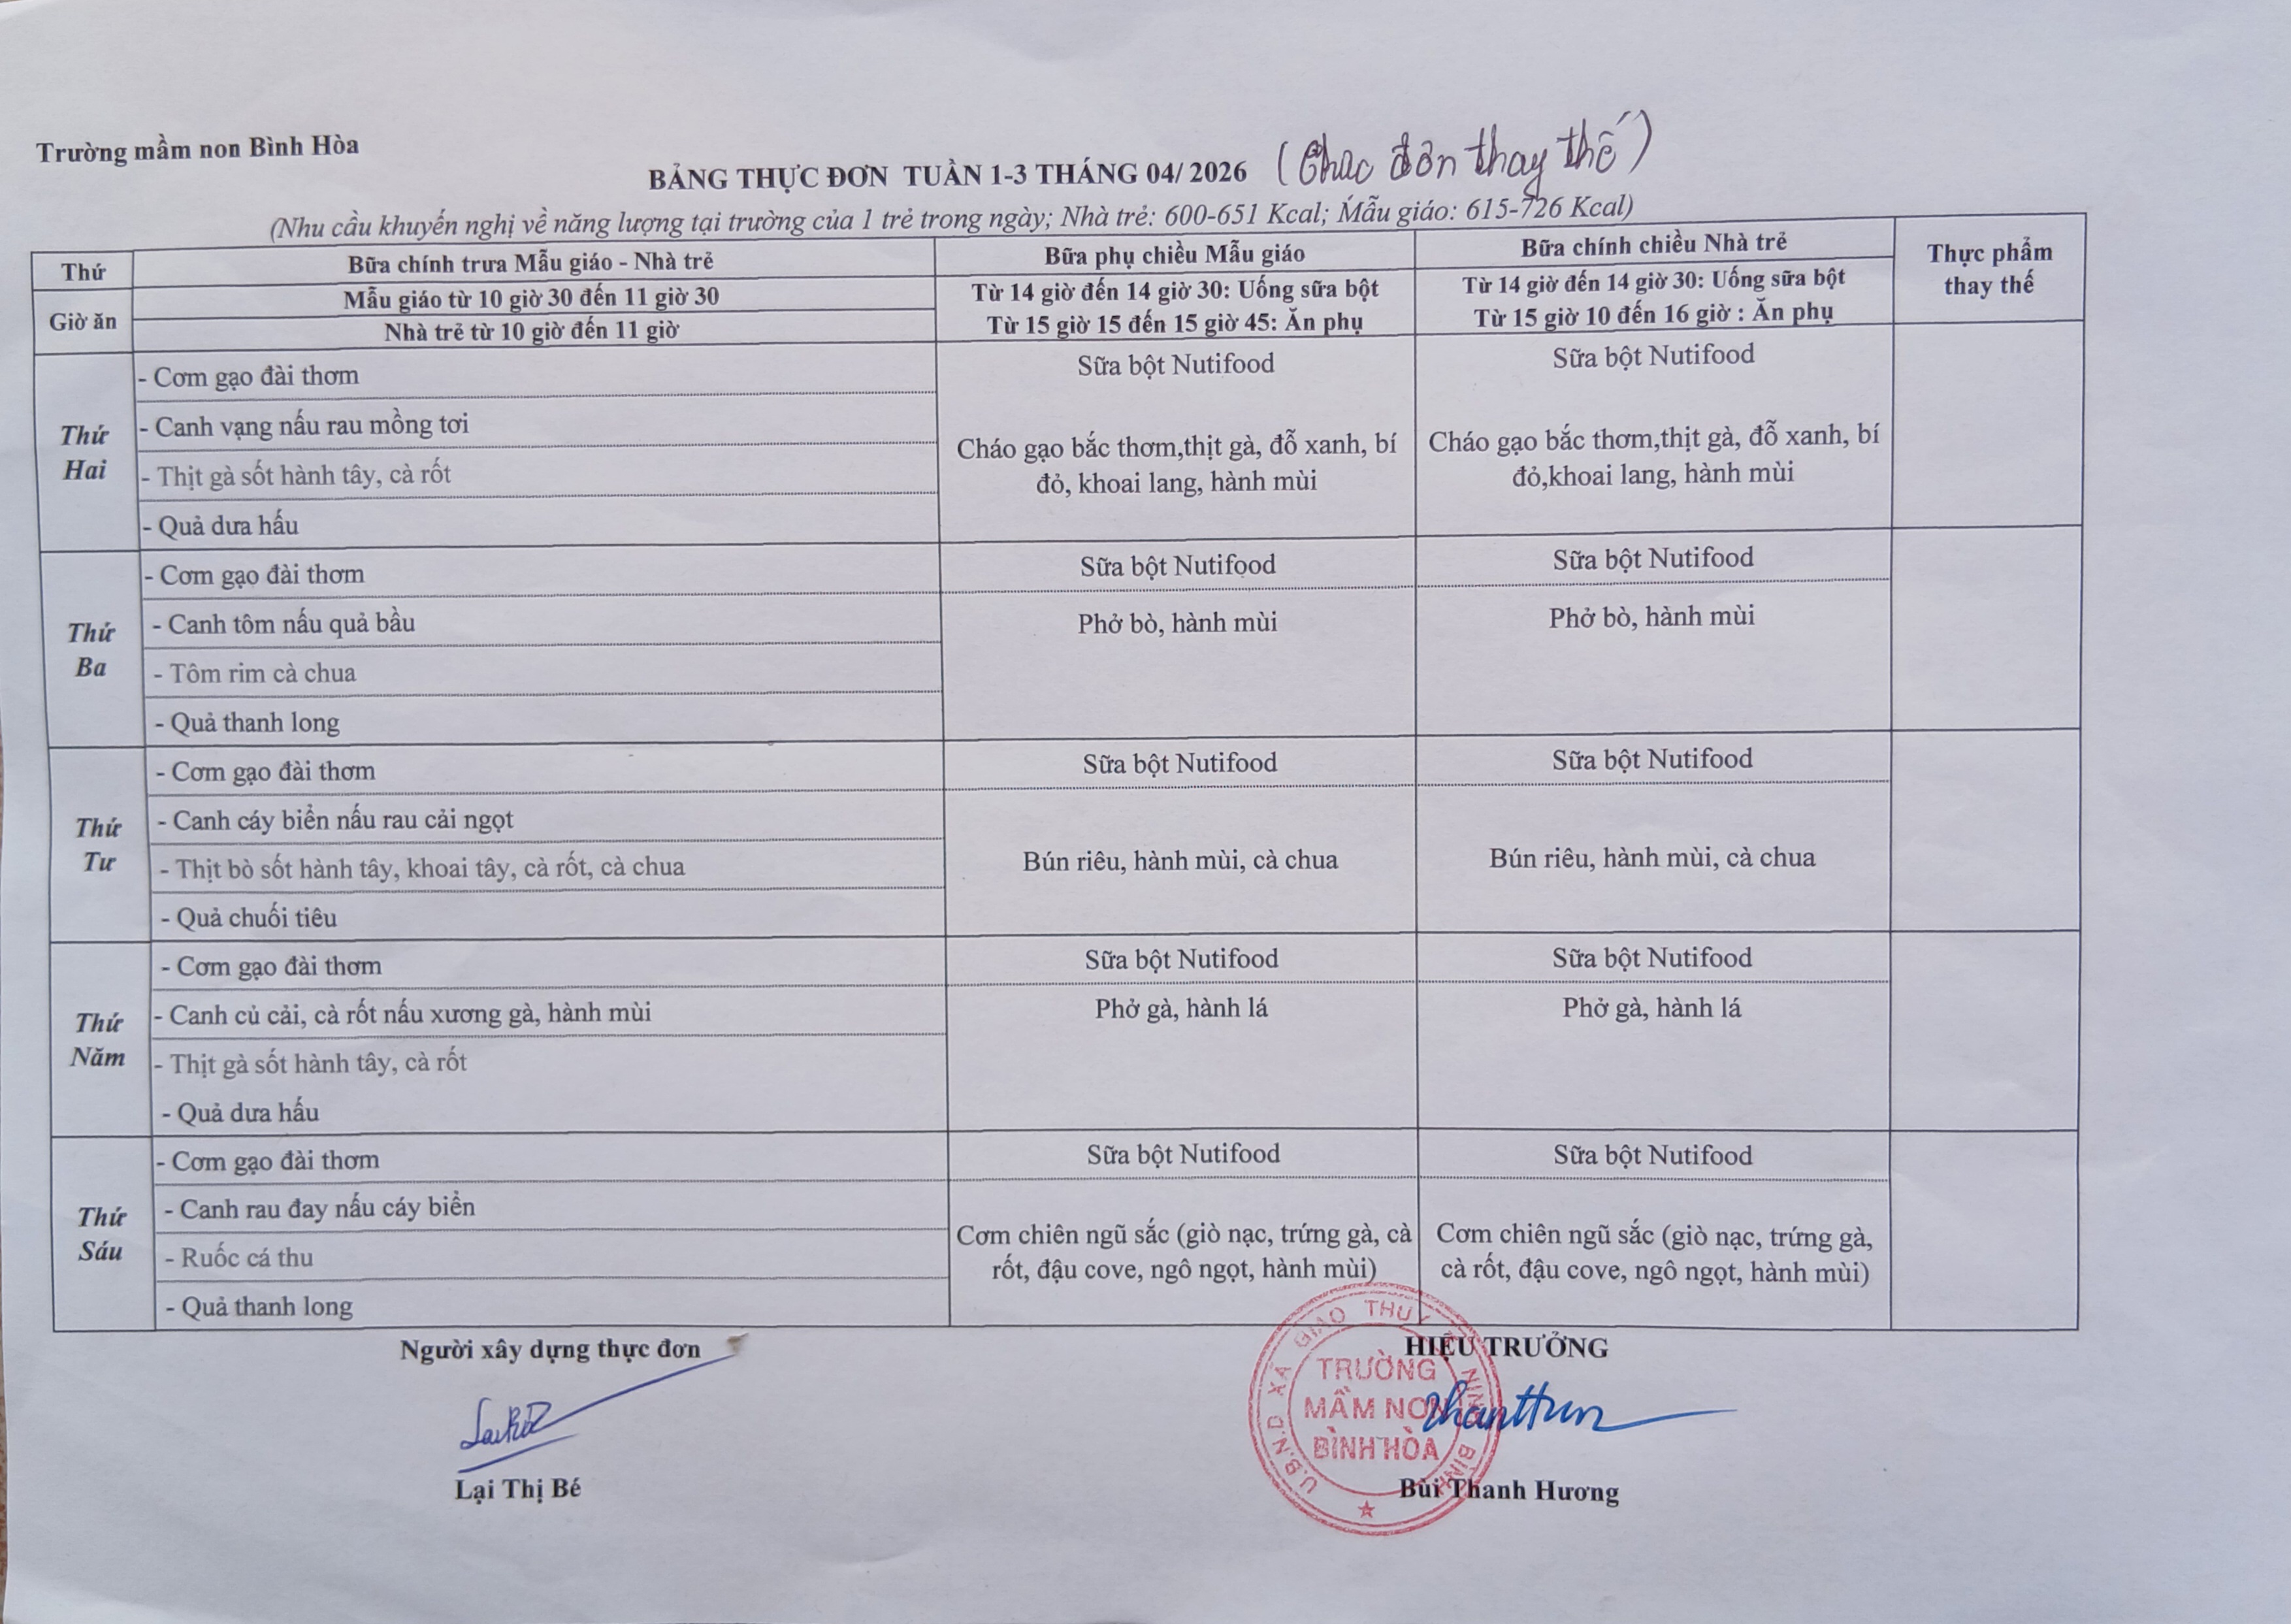 Trường mầm non Bình Hòa
BẢNG THỰC ĐƠN TUẦN 1-3 THÁNG 04/ 2026 (Thực đơn thay thế)
(Nhu cầu khuyến nghị về năng lượng tại trường của 1 trẻ trong ngày; Nhà trẻ: 600-651 Kcal; Mẫu giáo: 615-726 Kcal)
Thứ
Bữa chính trưa Mẫu giáo - Nhà trẻ
Bữa phụ chiều Mẫu giáo
Bữa chính chiều Nhà trẻ
Thực phẩm
thay thế
Giờ ăn
Mẫu giáo từ 10 giờ 30 đến 11 giờ 30
Nhà trẻ từ 10 giờ đến 11 giờ
Từ 14 giờ đến 14 giờ 30: Uống sữa bột
Từ 15 giờ 15 đến 15 giờ 45: Ăn phụ
Từ 14 giờ đến 14 giờ 30: Uống sữa bột
Từ 15 giờ 10 đến 16 giờ : Ăn phụ
Thứ
Hai
- Cơm gạo đài thơm
- Canh vạng nấu rau mồng tơi
- Thịt gà sốt hành tây, cà rốt
- Quả dưa hấu
Sữa bột Nutifood
Cháo gạo bắc thơm,thịt gà, đỗ xanh, bí
đỏ, khoai lang, hành mùi
Sữa bột Nutifood
Cháo gạo bắc thơm,thịt gà, đỗ xanh, bí
đỏ,khoai lang, hành mùi
Thứ
Ba
- Cơm gạo đài thơm
- Canh tôm nấu quả bầu
- Tôm rim cà chua
- Quả thanh long
Sữa bột Nutifood
Phở bò, hành mùi
Sữa bột Nutifood
Phở bò, hành mùi
Thứ
Tư
- Cơm gạo đài thơm
- Canh cáy biển nấu rau cải ngọt
- Thịt bò sốt hành tây, khoai tây, cà rốt, cà chua
- Quả chuối tiêu
Sữa bột Nutifood
Bún riêu, hành mùi, cà chua
Sữa bột Nutifood
Bún riêu, hành mùi, cà chua
Thứ
Năm
- Cơm gạo đài thơm
- Canh củ cải, cà rốt nấu xương gà, hành mùi
- Thịt gà sốt hành tây, cà rốt
- Quả dưa hấu
Sữa bột Nutifood
Phở gà, hành lá
Sữa bột Nutifood
Phở gà, hành lá
Thứ
Sáu
- Cơm gạo đài thơm
- Canh rau đay nấu cáy biển
- Ruốc cá thu
- Quả thanh long
Sữa bột Nutifood
Cơm chiên ngũ sắc (giò nạc, trứng gà, cà
rốt, đậu cove, ngô ngọt, hành mùi)
Sữa bột Nutifood
Cơm chiên ngũ sắc (giò nạc, trứng gà,
cà rốt, đậu cove, ngô ngọt, hành mùi)
Người xây dựng thực đơn
Lại Thị Bé
HIỆU TRƯỞNG
U.B.N.D XÃ GIAO THỦY NINH BÌNH
TRƯỜNG
MẦM NON
BÌNH HÒA
Bùi Thanh Hương